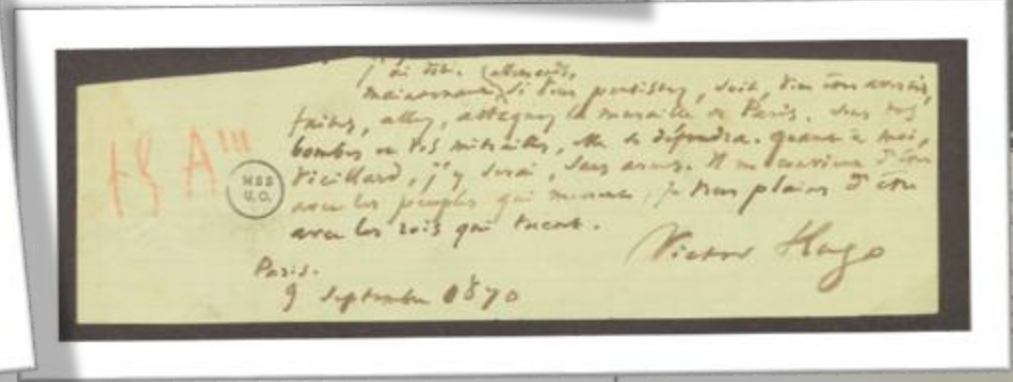 j'ai dit. (allemands,
maintenant, si vous persistez, soit, vous êtes avertis,
faites, allez, attaquez la muraille de Paris. Sous vos
bombes et vos mitrailles, elle se défendra. quant à moi,
vieillard, j'y serai, sans armes. Il me convient d'être
avec les peuples qui meurent, je vous plains d'être
avec les rois qui tuent.
Victor Hugo
MSS
U.O.
Paris.
9 septembre 1870